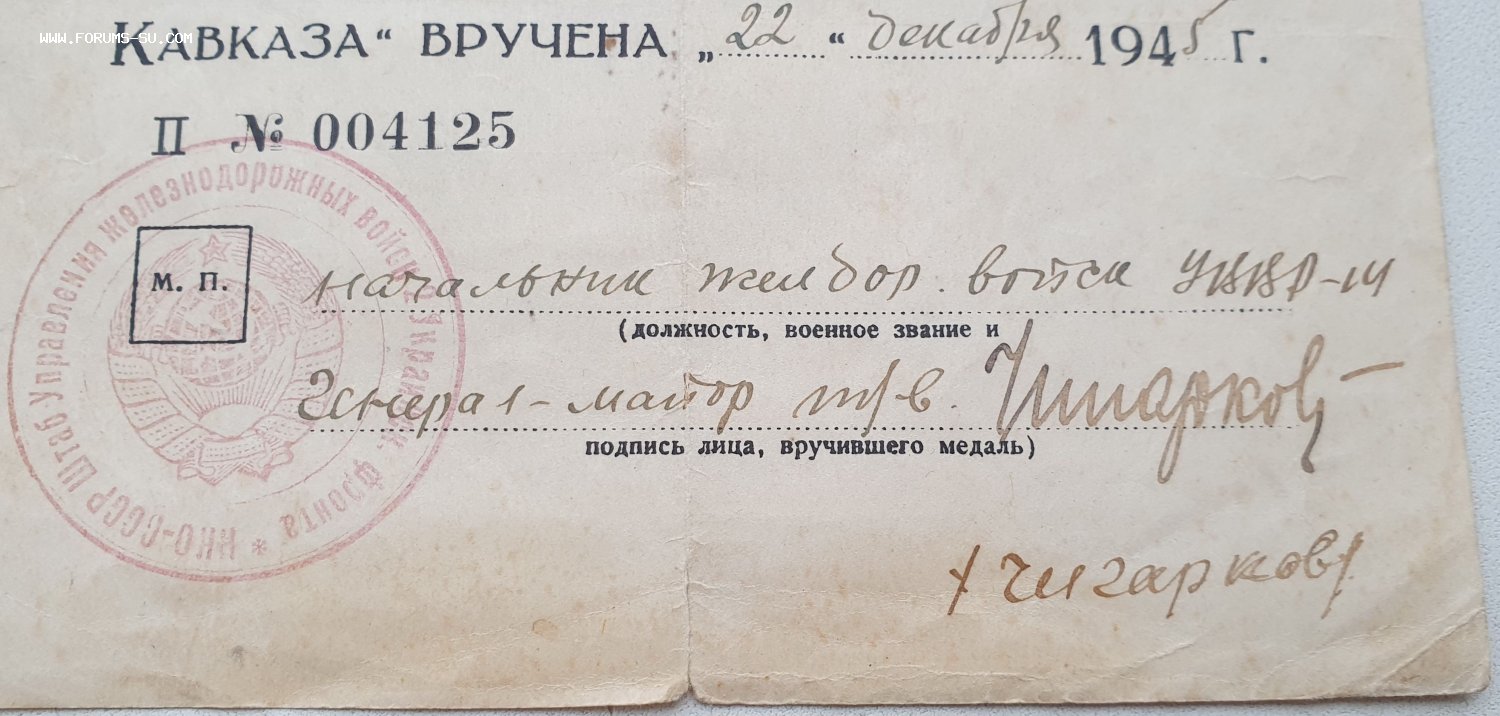 www.forums-su.com
КАВКАЗА“ ВРУЧЕНА „22“ декабря 1945 г.
П № 004125
НКО-СССР Штаб Управления железнодорожных войск Украинск. фронта *
М. П.
начальник желдор. войск
(должность, военное звание и
Генерал-майор т/в. Чигарков
подпись лица, вручившего медаль)
/Чигарков/